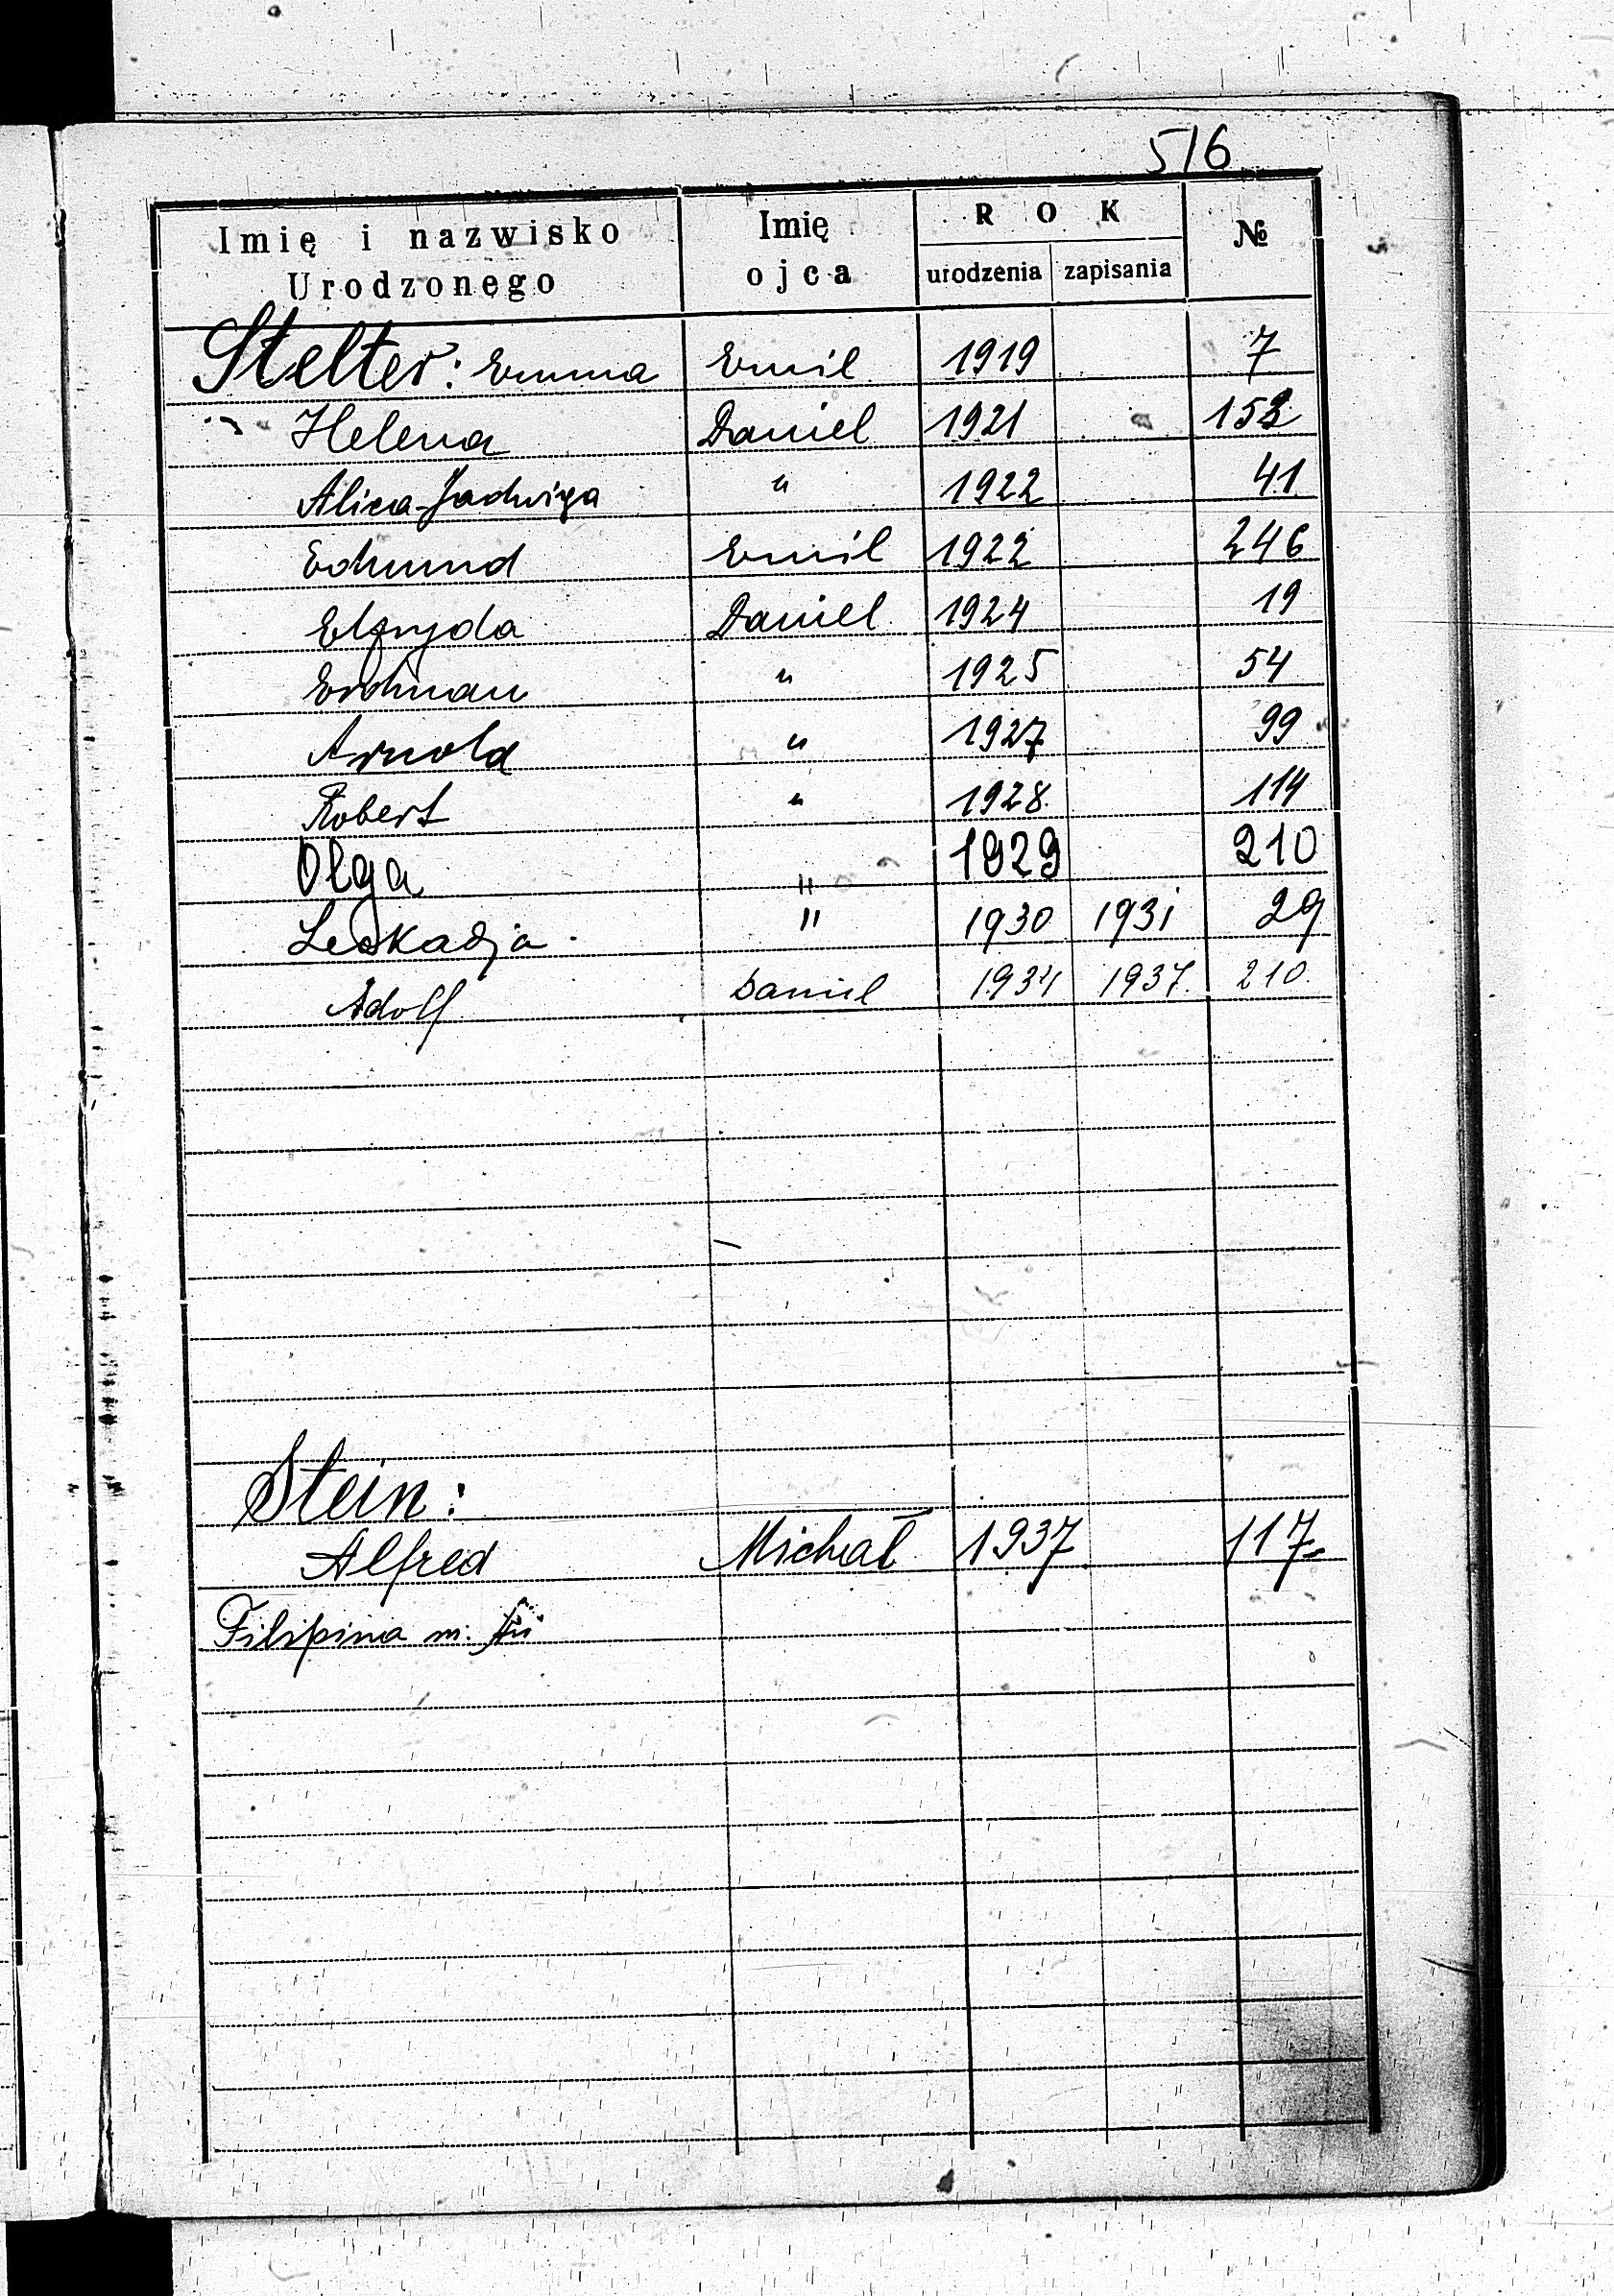 516
Imię i nazwisko Urodzonego Imię ojca ROK urodzenia zapisania №
Stelter: Emma Emil 1919 7
Helena Daniel 1921
Alicea-Jadwiga " 1922 41
Edmund Emil 1922 246
Elfryda Daniel 1924 19
Erdman " 1925 54
Arnold " 1927 99
Robert " 1928. 114
Olga " 1929 210
Leokadja " 1930 1931 29
Adolf Daniel 1934 1937. 210.
Stein:
Alfred Michał 1937 117
Filipina m.